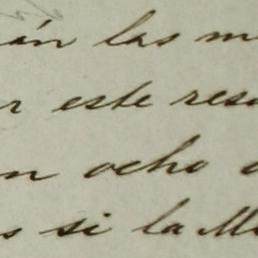 án las m
r este res
n ocho
s si la M